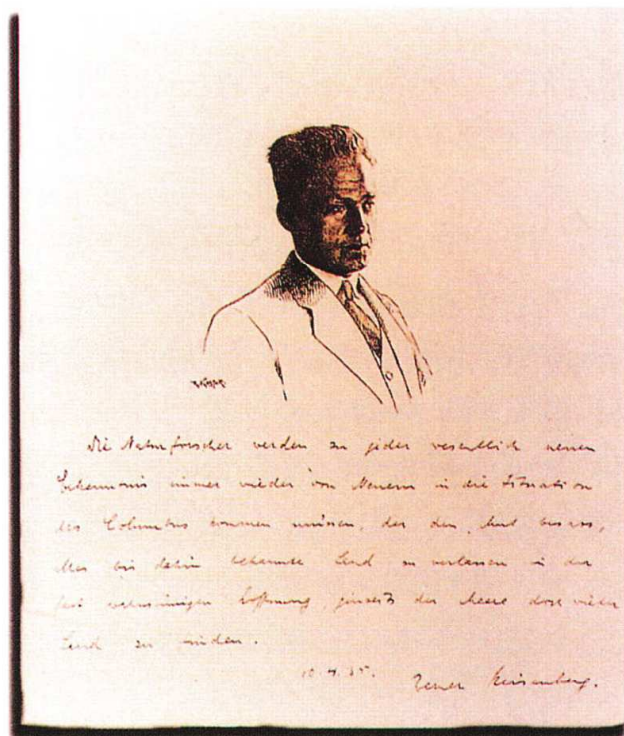 Die Naturforscher werden zu jeder wesentlich neuen
Erkenntnis immer wieder von Neuem in die Situation
des Columbus kommen müssen, der den Mut besass,
alles bis dahin bekannte Land zu verlassen in der
fast wahnsinnigen Hoffnung, jenseits der Meere doch wieder
Land zu finden.
Werner Heisenberg.